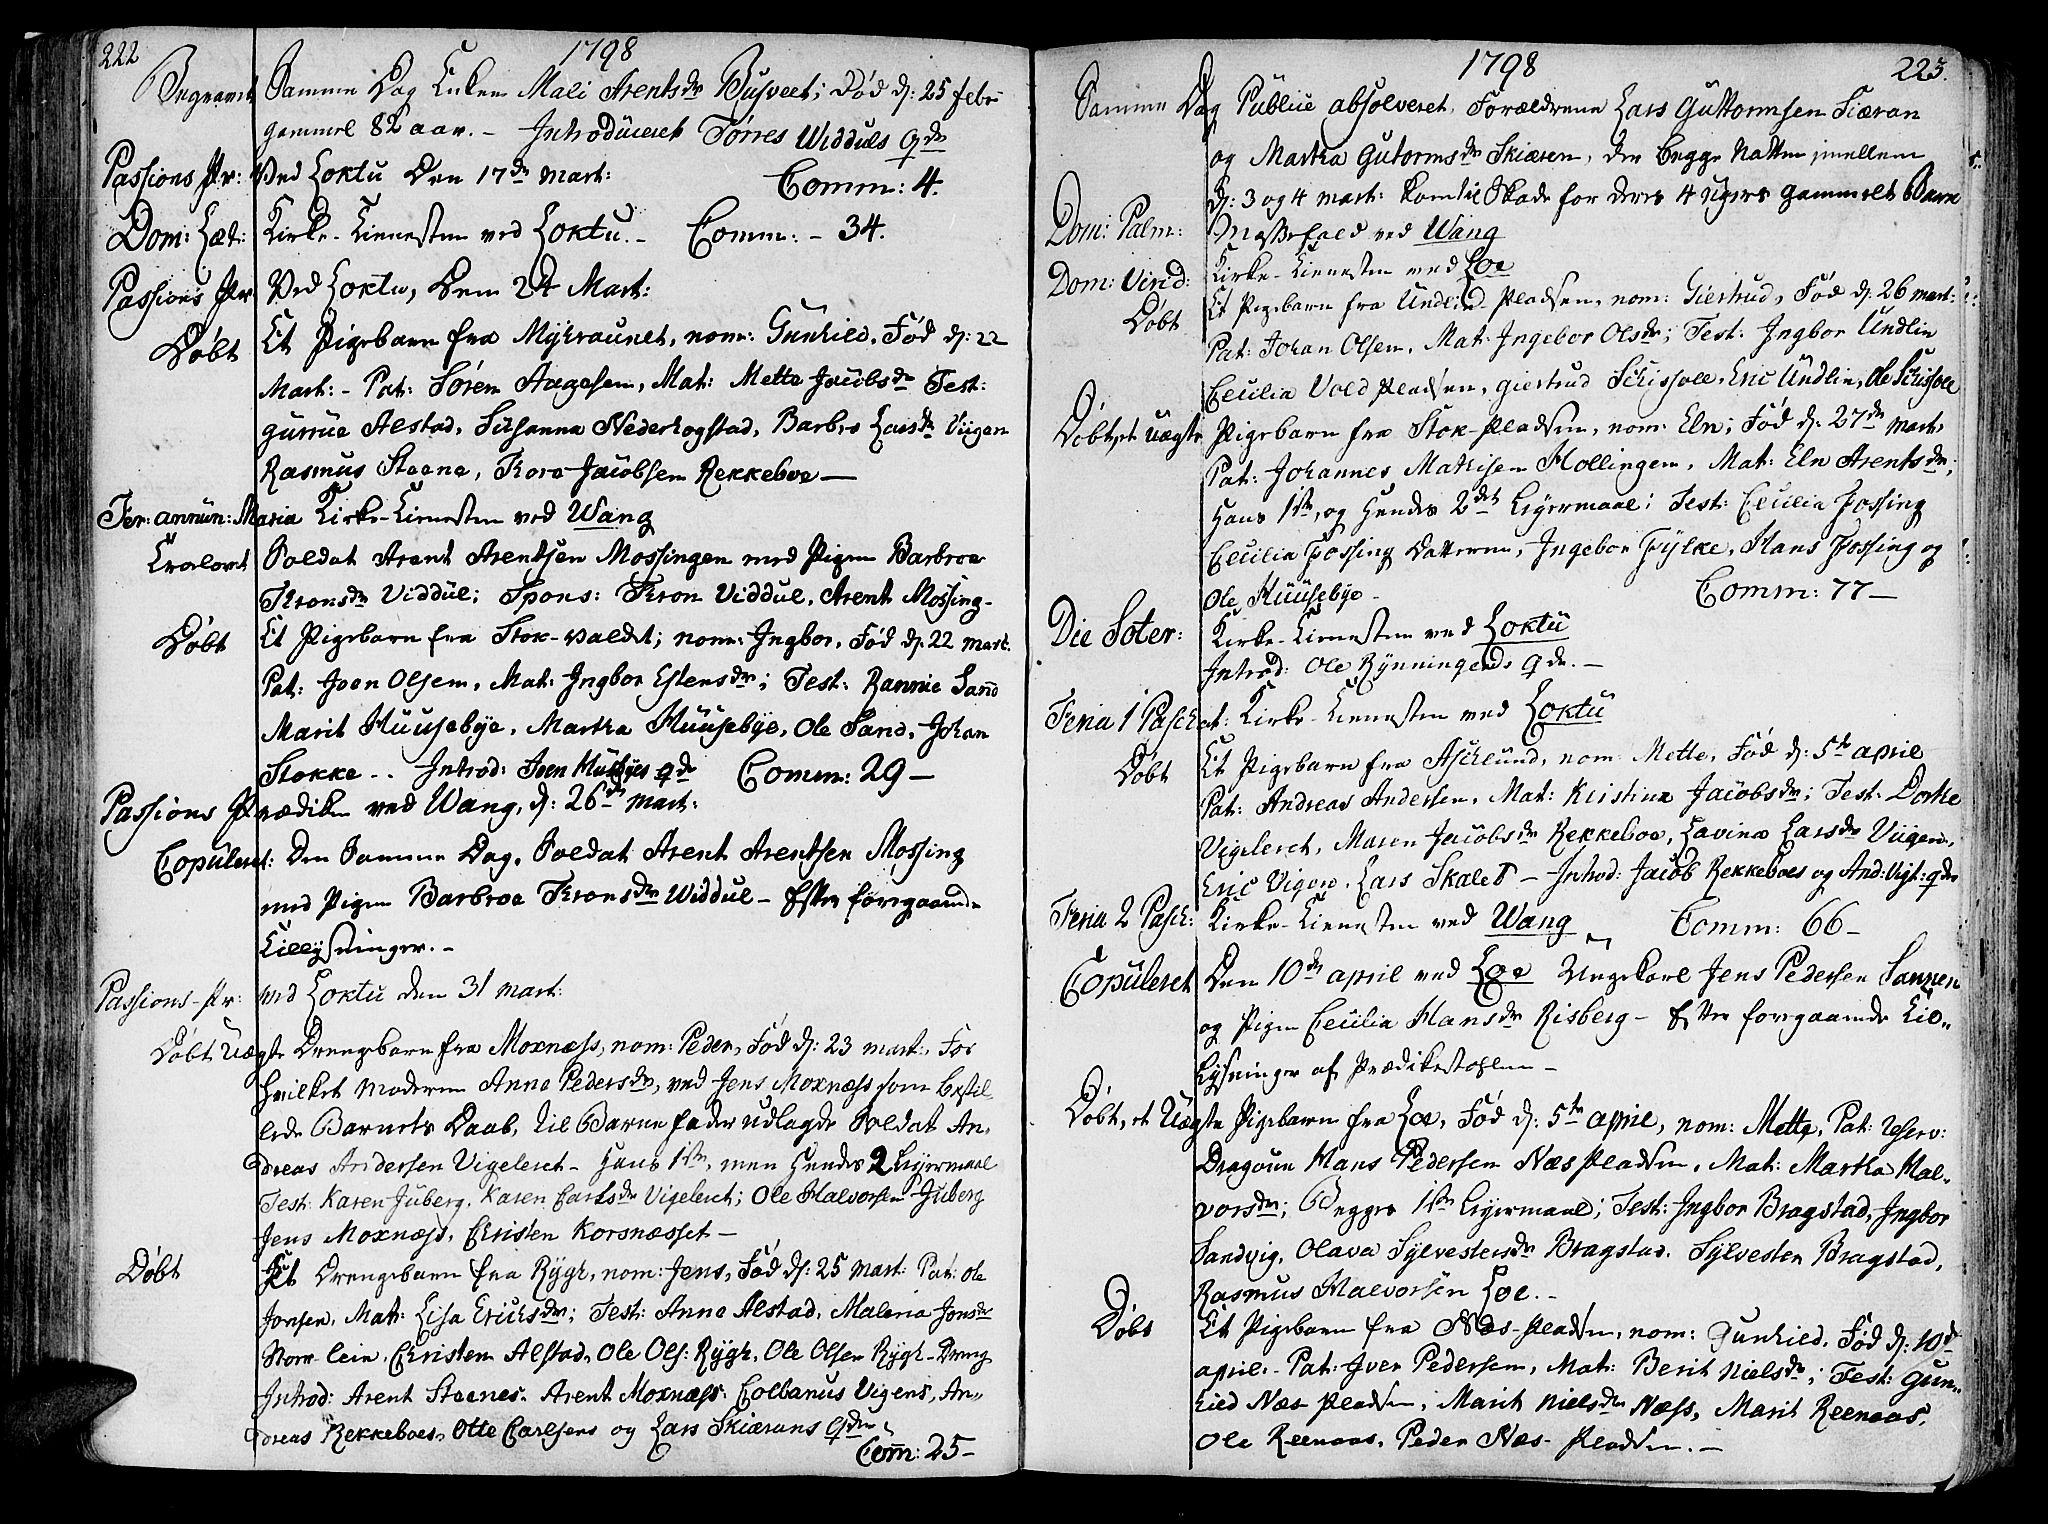 222
1798
Begravet Samme Dag Enken Mali Arentsdr Busveet; Død d: 25 febr
gammel 82 aar. - Introduceret Torres Widduls qde
Passions Pr: Ved Loktu Den 17de Mart: Comm: 4.
Dom: Læt: Kirke-Tienesten ved Loktu. - Comm: - 34.
Passions Pr Ved Loktu, Den 24 Mart:
Døbt Et Pigebarn fra Mykraunet, nom: Gunhild. Fød d: 22
Mart: - Pat: Søren Aagesen, Mat: Mette Jacobsdr Test:
gurrue Alstad, Susanna Nederhogstad, Barbro Larsdr Viigen
Rasmus Steene, Thore Jacobsen Rekkeboe —
Fer: annun: Maria Kirke-Tienesten ved Wang
Trolovet Soldat Arent Arentsen Mossingen med Pigen Barbroe
Thronsdr Viddul; Spons: Thron Viddul, Arent Mossing-
Døbt Et Pigebarn fra Stok-valdet; nom: Ingbor, Fød d: 22 mart.
Pat: Joen Olsen, Mat: Ingbor Estensdr; Test: Rannie Sand
Marit Huusebye, Martha Huusebye, Ole Sand, Johan
Stokke .. Introd: Joen Husbyes qde Comm: 29 —
Passions Prædiken ved Wang, d: 26de Mart:
Copuleret: Den Samme Dag, Soldat Arent Arentsen Mossing
med Pigen Barbroe Thronsdr Widdul - Efter foregaaende
Tillysninger. -
Passions-Pr: ved Loktu den 31 mart:
Døbt Uægte Drengebarn fra Moxnæss, nom: Peder, Fød d: 23 mart: For
hvilket moderen Anne Pedersdr, ved Jens Moxnæss som bestil-
lede Barnets Daab, til Barnefader udlagde Soldat An-
dreas Andersen Vigeleret - Hans 1ste, men Hendes 2 Leyermaal
Test: Karen Juberg, Karen Carlsdr Vigeleret; Ole Halvorsen Juberg
Jens Moxnæss, Christen Korsnæsset —
Døbt Et Drengebarn fra Rygh, nom: Jens, Fød d: 25 Mart: Pat: Ole
Jonsen, Mat: Lisa Erichsdr; Test: Anne Alstad, Maleria Jonsdr
Norr-lein, Christen Alstad, Ole Ols: Rygh, Ole Olsen Rygh-Dreng
Introd: Arent Steenes. Arent Moxnæss: Colbanus Vigens, An-
dreas Rekkeboes, Otte Carlsens og Lars Skiærans qder
Com: 25 —
1798
223.
Samme Dag Publice absolveret, Forældrene Lars Guttormsen Fiæran
og Martha Gutormsdr Skiæren, der begge Natten imellem
d: 3 og 4 mart: kom til Skade for deres 4 Ugers gammelt Barn
Dom: Palm: Messefald ved Wang
Dom: Virid: Kirke-Tienesten ved Loe
Døbt Et Pigebarn fra Undlid-Pladsen, nom: Giertrud, Fød d: 26 mart:
Pat: Johan Olsen, Mat: Ingebor Olsdr; Test: Ingbor Undlin
Cecilia Vold Pladsen, giertrud Schissole, Eric Undlin, Ole Schissole
Døbt, et Uægte Pigebarn fra Stok-Pladsen, nom: Eln; Fød d: 27de mart:
Pat: Johannes Mathisen Hollingen, Mat: Eln Arentsdr;
Hans 1ste, og Hendes 2det Leyermaal; Test: Cecilia Fossing
Cecilia Fossing Datteren, Ingebor Fylke, Hans Fossing og
Ole Huusebye - Comm: 77 —
Die Soter: Kirke-Tienesten ved Loktu
Introd: Ole Rynningens qde. —
Feria 1 Paschat: Kirke-Tienesten ved Loktu
Døbt Et Pigebarn fra Aschlund, nom: Mette, Fød d: 5te april
Pat: Andreas Andersen, Mat: Kirstina Jacobsdr; Test: Dorthe
Vigeleret, Maren Jacobsdr Rekkeboe, Lavina Larsdr Viigen,
Eric Vigen, Lars Skalet - Introd: Jacob Rekkeboes og And: Vigl: qder
Feria 2 Pasch: Kirke-Tienesten ved Wang Comm: 66 —
Copuleret Den 10de april ved Loe Ungekarl Jens Pedersen Sannen
og Pigen Cecilia Hansdr Risberg - Efter foregaaende Til-
Lysninger af Prædikestolen -
Døbt, et Uægte Pigebarn fra Loe, Fød d: 5te april, nom: Mette, Pat: Reserv:
Dragoun Hans Pedersen Næs Pladsen, Mat: Martha Hal-
vorsdr; Begges 1ste Leyermaal; Test: Ingbor Bragstad, Ingbor
Sandvig, Olava Sylvestersdr Bragstad, Sylvester Bragstad,
Rasmus Halvorsen Loe. -
Døbt Et Pigebarn fra Næs-Pladsen, nom: Gunhild, Fød d: 10de
april. - Pat: Iver Pedersen, Mat: Berit Nielsdr; Test: Gun-
hild Næs Pladsen, Marit Nielsdr Næss, Marit Reenaas.
Ole Reenaas, Peder Næs-Pladsen. —